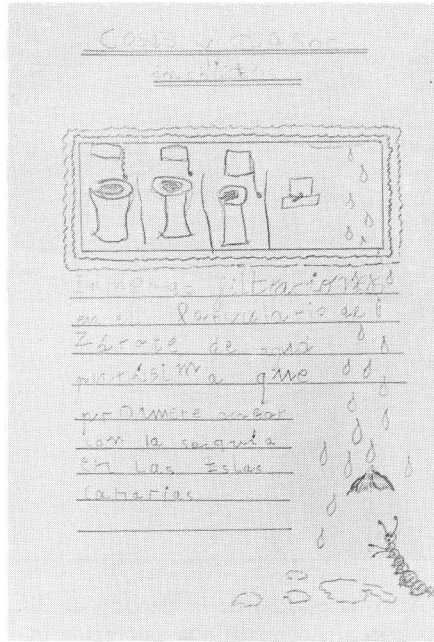 Cosas y casos
insólitos
Inmensas filtraciones
en el Parvulario de
Zárate de agua
purísima que
promete acabar
con la sequía
en las Islas
Canarias